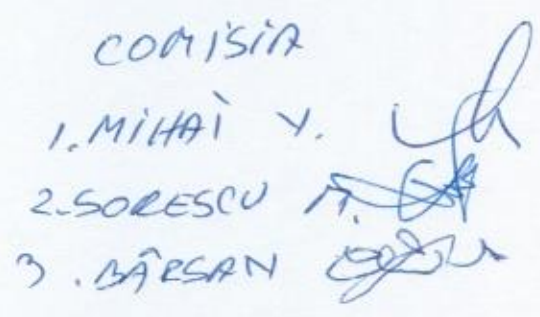 COMISIA
1. MIHAI V.
2. SORESCU M.
3. BÂRSAN